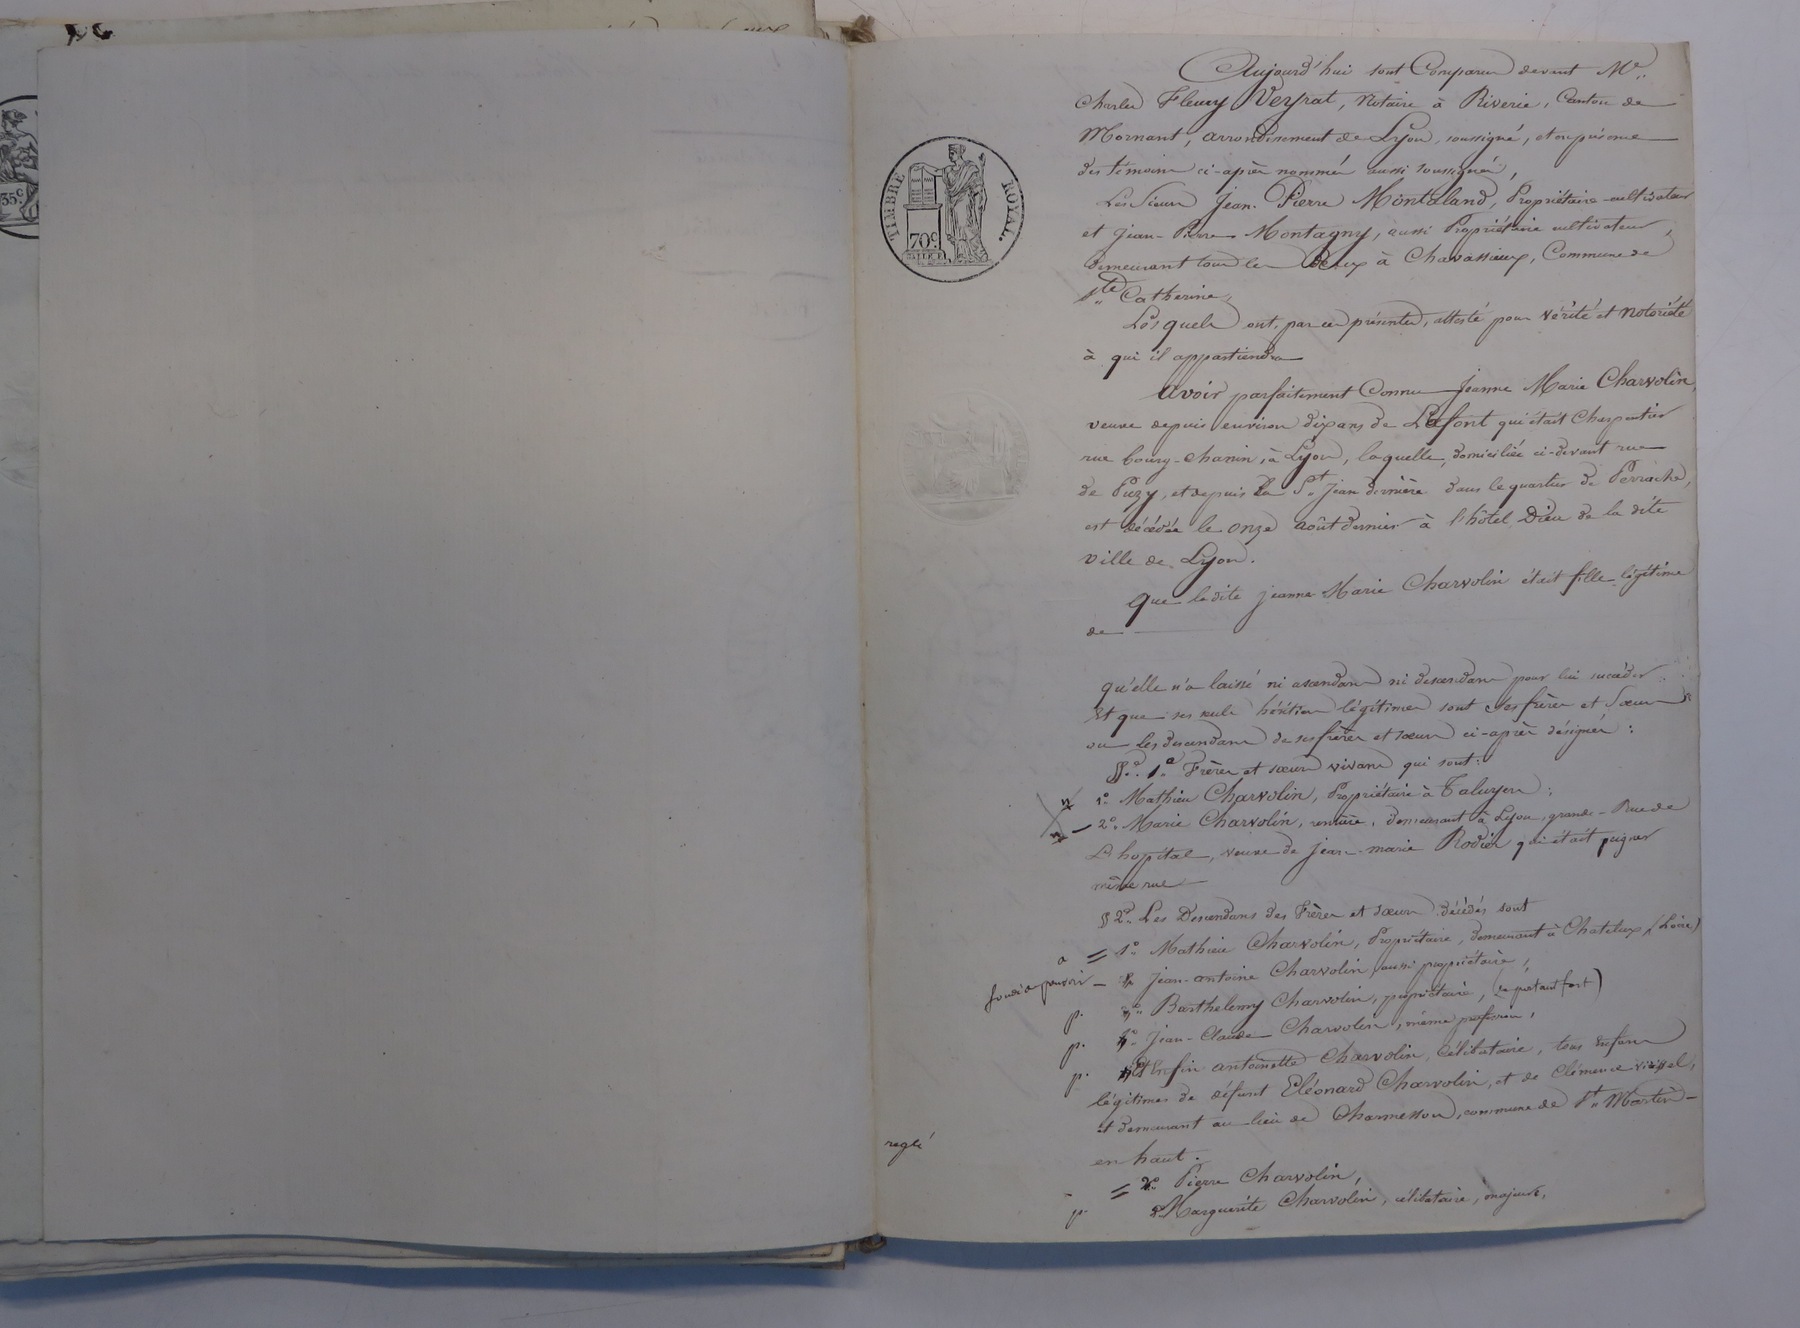 35c
TIMBRE ROYAL.
70c
Aujourd'hui sont Comparus devant Me
Charles Fleury Veyrat, Notaire à Riverie, Canton de
Mornant, arrondissement de Lyon, soussigné, et en présence
des témoins ci-après nommés aussi soussignés,
Les Sieurs Jean-Pierre Montaland, Propriétaire-cultivateur
et Jean-Pierre Montagny, aussi Propriétaire cultivateur,
demeurant tous les deux à Chavassieux, Commune de
Ste Catherine,
Lesquels ont, par ces présentes, attesté pour vérité et notoriété
à qui il appartiendra
Avoir parfaitement Connu Jeanne Marie Charvolin,
veuve depuis environ dix ans de Lafont qui était Charpentier
rue bourg-chanin, à Lyon, laquelle, domiciliée ci-devant rue
de Puzy, et depuis la St Jean dernière dans le quartier de Perrache,
est décédée le onze août dernier à l'hôtel Dieu de la dite
ville de Lyon.
Que la dite Jeanne Marie Charvolin était fille légitime
de
qu'elle n'a laissé ni ascendans ni descendans pour lui succéder
Et que ses seuls héritiers légitimes sont ses frères et sœurs
ou les descendans de ses frères et sœurs ci-après désignés :
§. 1er Frères et sœurs vivans qui sont :
1o Mathieu Charvolin, Propriétaire à Taluyers ;
2o Marie Charvolin, rentière, demeurant à Lyon, grande-Rue de
L'hopital, veuve de Jean-marie Rodier qui était peigner
même rue
§ 2e. Les Descendans des Frères et sœurs décédés sont
a = 1o Mathieu Charvolin, Propriétaire, demeurant à Chatelus (Loire)
Jean-antoine Charvolin aussi propriétaire,
p. Barthelemy Charvolin, propriétaire, (se portant fort)
p. Jean-Claude Charvolin, même profession,
p. Et Enfin antoinette Charvolin, Célibataire, tous enfans
légitimes de défunt Eléonard Charvolin, et de Clémence
et demeurant au lieu de commune de St Martin-
en haut.
reglé
= 2o Pierre Charvolin,
p. Marguerite Charvolin, célibataire, majeure,